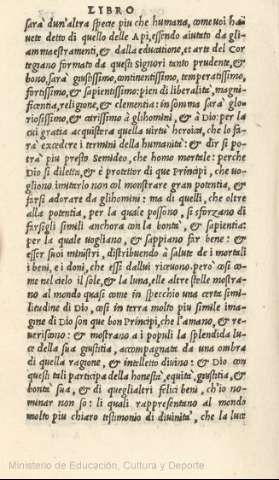 LIBRO
sarà d'un'altra spetie piu che humana, come uoi ha
uete detto di quello delle Api, essendo aiutato da gli
ammaestramenti, & dalla educatione, et arte del Cor
tegiano formato da questi signori tanto prudente, &
bono, sarà giustissimo, continentissimo, temperatissimo,
fortissimo, & sapientissimo: pien di liberalità, magni
ficentia, religione, & clementia: in somma sarà glo
riosissimo, & carissimo à glihomini, & à Dio: per la
cui gratia acquisterà quella uirtu heroica, che lo fa
rà excedere i termini della humanità: & dir si po
rà piu presto Semideo, che homo mortale: perche
Dio si diletta, & è protettor di que Principi, che uo
gliono imitarlo non col monstrare gran potentia, &
farsi adorare da glihomini: ma di quelli, che oltre
alla potentia, per la quale possono, si sforzano di
farsegli simili anchora con la bontà, & sapientia:
per la quale uogliano, & sappiano far bene: &
esser suoi ministri, distribuendo à salute de i mortali
i beni, e i doni, che essi dallui riceuono. però cosi co
me nel cielo il sole, & la luna, elle altre stelle mostra
no al mondo quasi come in specchio una certa simi
litudine di Dio, cosi in terra molto piu simile ima
gine di Dio son que bon Principi, che l'amano, & re
ueriscono: & mostrano a i populi la splendida lu
ce della sua giustitia, accompagnata da una ombra
di quella ragione, & intelletto diuino: & Dio con
questi tali participa della honestà, equità, giustitia, &
bontà sua, & di queglialtri felici beni, ch'io no
minar non so: li quali rappresentano al mondo
molto piu chiaro testimonio di diuinità, che la luce
Ministerio de Educación, Cultura y Deporte